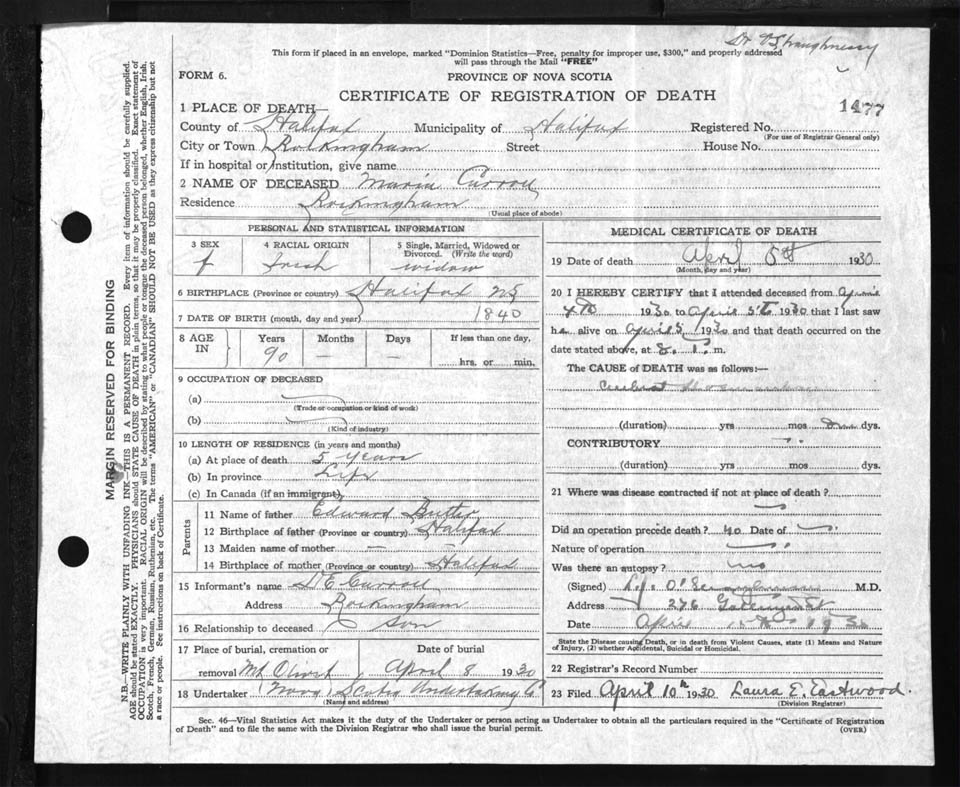 Dr
This form if placed in an envelope, marked "Dominion Statistics—Free, penalty for improper use, $300," and properly addressed
will pass through the Mail "FREE"
FORM 6.
PROVINCE OF NOVA SCOTIA
CERTIFICATE OF REGISTRATION OF DEATH
1477
1 PLACE OF DEATH—
County of Halifax Municipality of Halifax Registered No.
(For use of Registrar General only)
City or Town Rockingham Street House No.
If in hospital or institution, give name
2 NAME OF DECEASED Maria Carroll
Residence Rockingham
(Usual place of abode)
PERSONAL AND STATISTICAL INFORMATION
3 SEX 4 RACIAL ORIGIN 5 Single, Married, Widowed or
Divorced. (Write the word)
f Irish widow
6 BIRTHPLACE (Province or country) Halifax NS
7 DATE OF BIRTH (month, day and year) 1840
8 AGE IN Years Months Days If less than one day,
90 — — hrs. or min.
9 OCCUPATION OF DECEASED
(a)
(Trade or occupation or kind of work)
(b)
(Kind of industry)
10 LENGTH OF RESIDENCE (in years and months)
(a) At place of death 5 years
(b) In province Life
(c) In Canada (if an immigrant)
Parents
11 Name of father Edward Butler
12 Birthplace of father (Province or country) Halifax
13 Maiden name of mother —
14 Birthplace of mother (Province or country) Halifax
15 Informant's name D E Carroll
Address Rockingham
16 Relationship to deceased Son
17 Place of burial, cremation or Date of burial
removal Mt Olivet April 8 1930
18 Undertaker Nova Scotia Undertaking Co
(Name and address)
MEDICAL CERTIFICATE OF DEATH
19 Date of death April 5th 1930
(Month, day and year)
20 I HEREBY CERTIFY that I attended deceased from April
4th 1930 to April 5th 1930 that I last saw
h alive on April 5 1930 and that death occurred on
date stated above, at 8. m.
The CAUSE of DEATH was as follows:—
(duration) yrs mos dys.
CONTRIBUTORY
(duration) yrs mos dys.
21 Where was disease contracted if not at place of death?
Did an operation precede death? no Date of
Nature of operation
Was there an autopsy? no
(Signed) M.D.
Address 276 Gottingen St
Date April 1930
State the Disease causing Death, or in death from Violent Causes, state (1) Means and Nature
of Injury, (2) whether Accidental, Suicidal or Homicidal.
22 Registrar's Record Number
23 Filed April 10th 1930 Laura E. Eastwood.
(Division Registrar)
Sec. 46—Vital Statistics Act makes it the duty of the Undertaker or person acting as Undertaker to obtain all the particulars required in the "Certificate of Registration
of Death" and to file the same with the Division Registrar who shall issue the burial permit. (OVER)
MARGIN RESERVED FOR BINDING
N.B.—WRITE PLAINLY WITH UNFADING INK—THIS IS A PERMANENT RECORD. Every item of information should be carefully supplied.
AGE should be stated EXACTLY. PHYSICIANS should STATE CAUSE OF DEATH in plain terms, so that it may be properly classified. Exact statement of
OCCUPATION is very important. RACIAL ORIGIN will be described by stating to what people or tongue the deceased person belonged, whether English, Irish,
Scotch, French, German, Russian, Ruthenian, etc. The terms "AMERICAN" or "CANADIAN" SHOULD NOT BE USED as they express citizenship but not
a race or people. See instructions on back of Certificate.